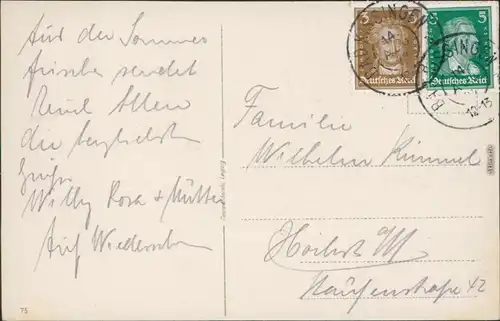 Aus der Sommer
frische sendet
Euch Allen
die herzlichsten
Grüße
Willy Rosa & Mutter
Auf Wiedersehen
75
3
Deutsches Reich
5
Deutsches Reich
SINGEN
12-13
Familie
Wilhelm Kümmel
Höchst a/M